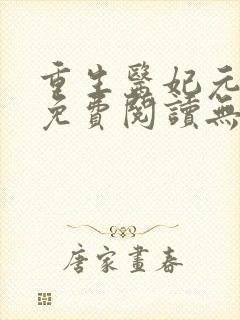 重生醫妃元
免費閱讀無
唐家畫春